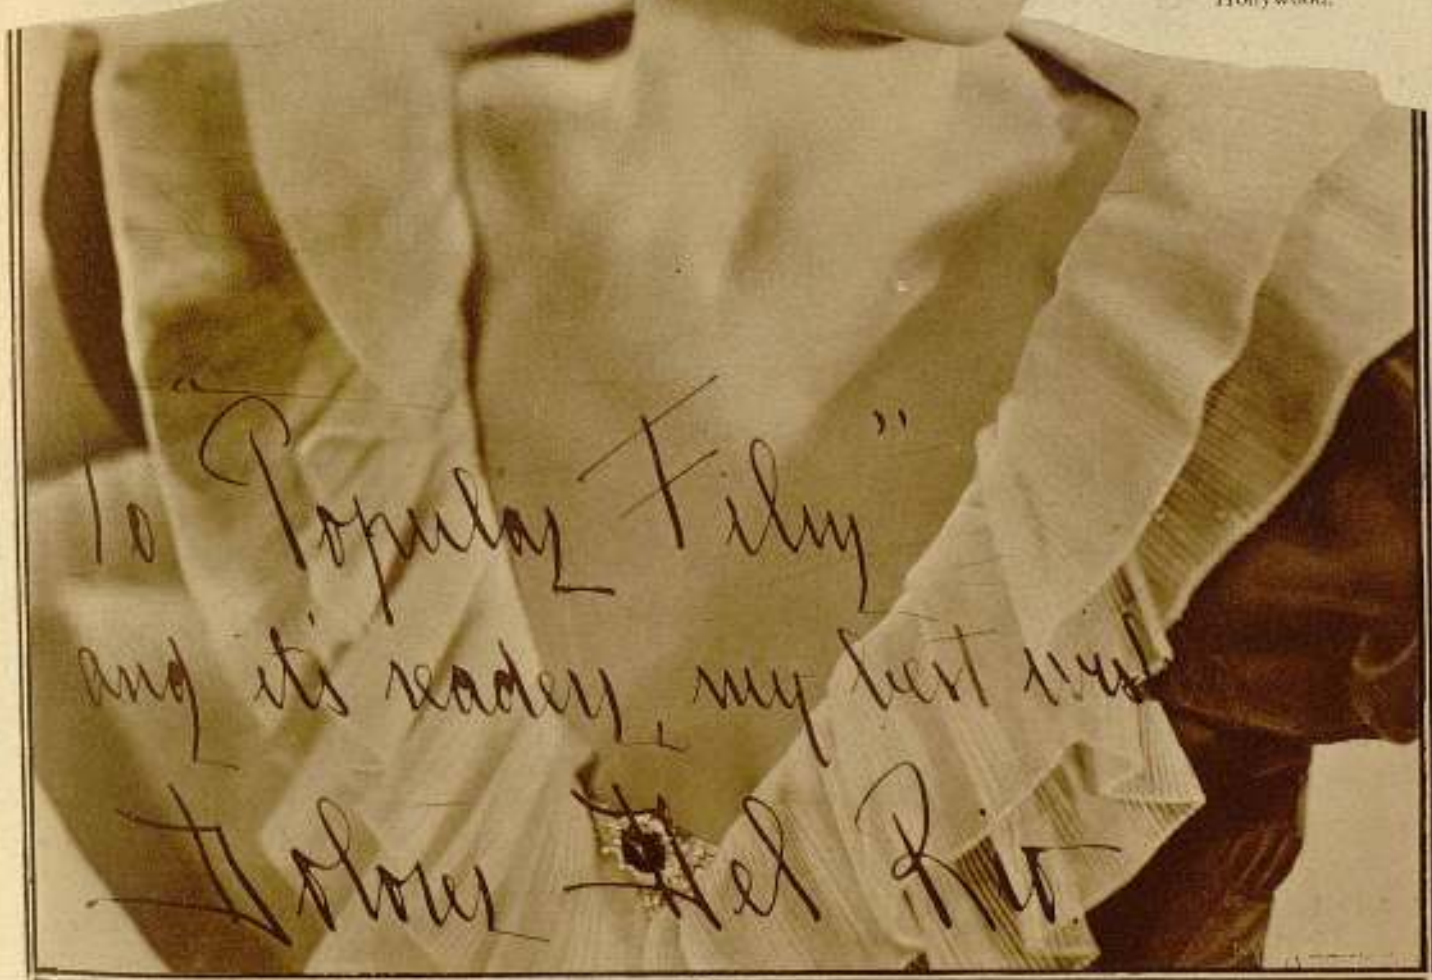 Hollywood.
To "Popular Film"
and it's readers, my best wish
Dolores Del Rio.